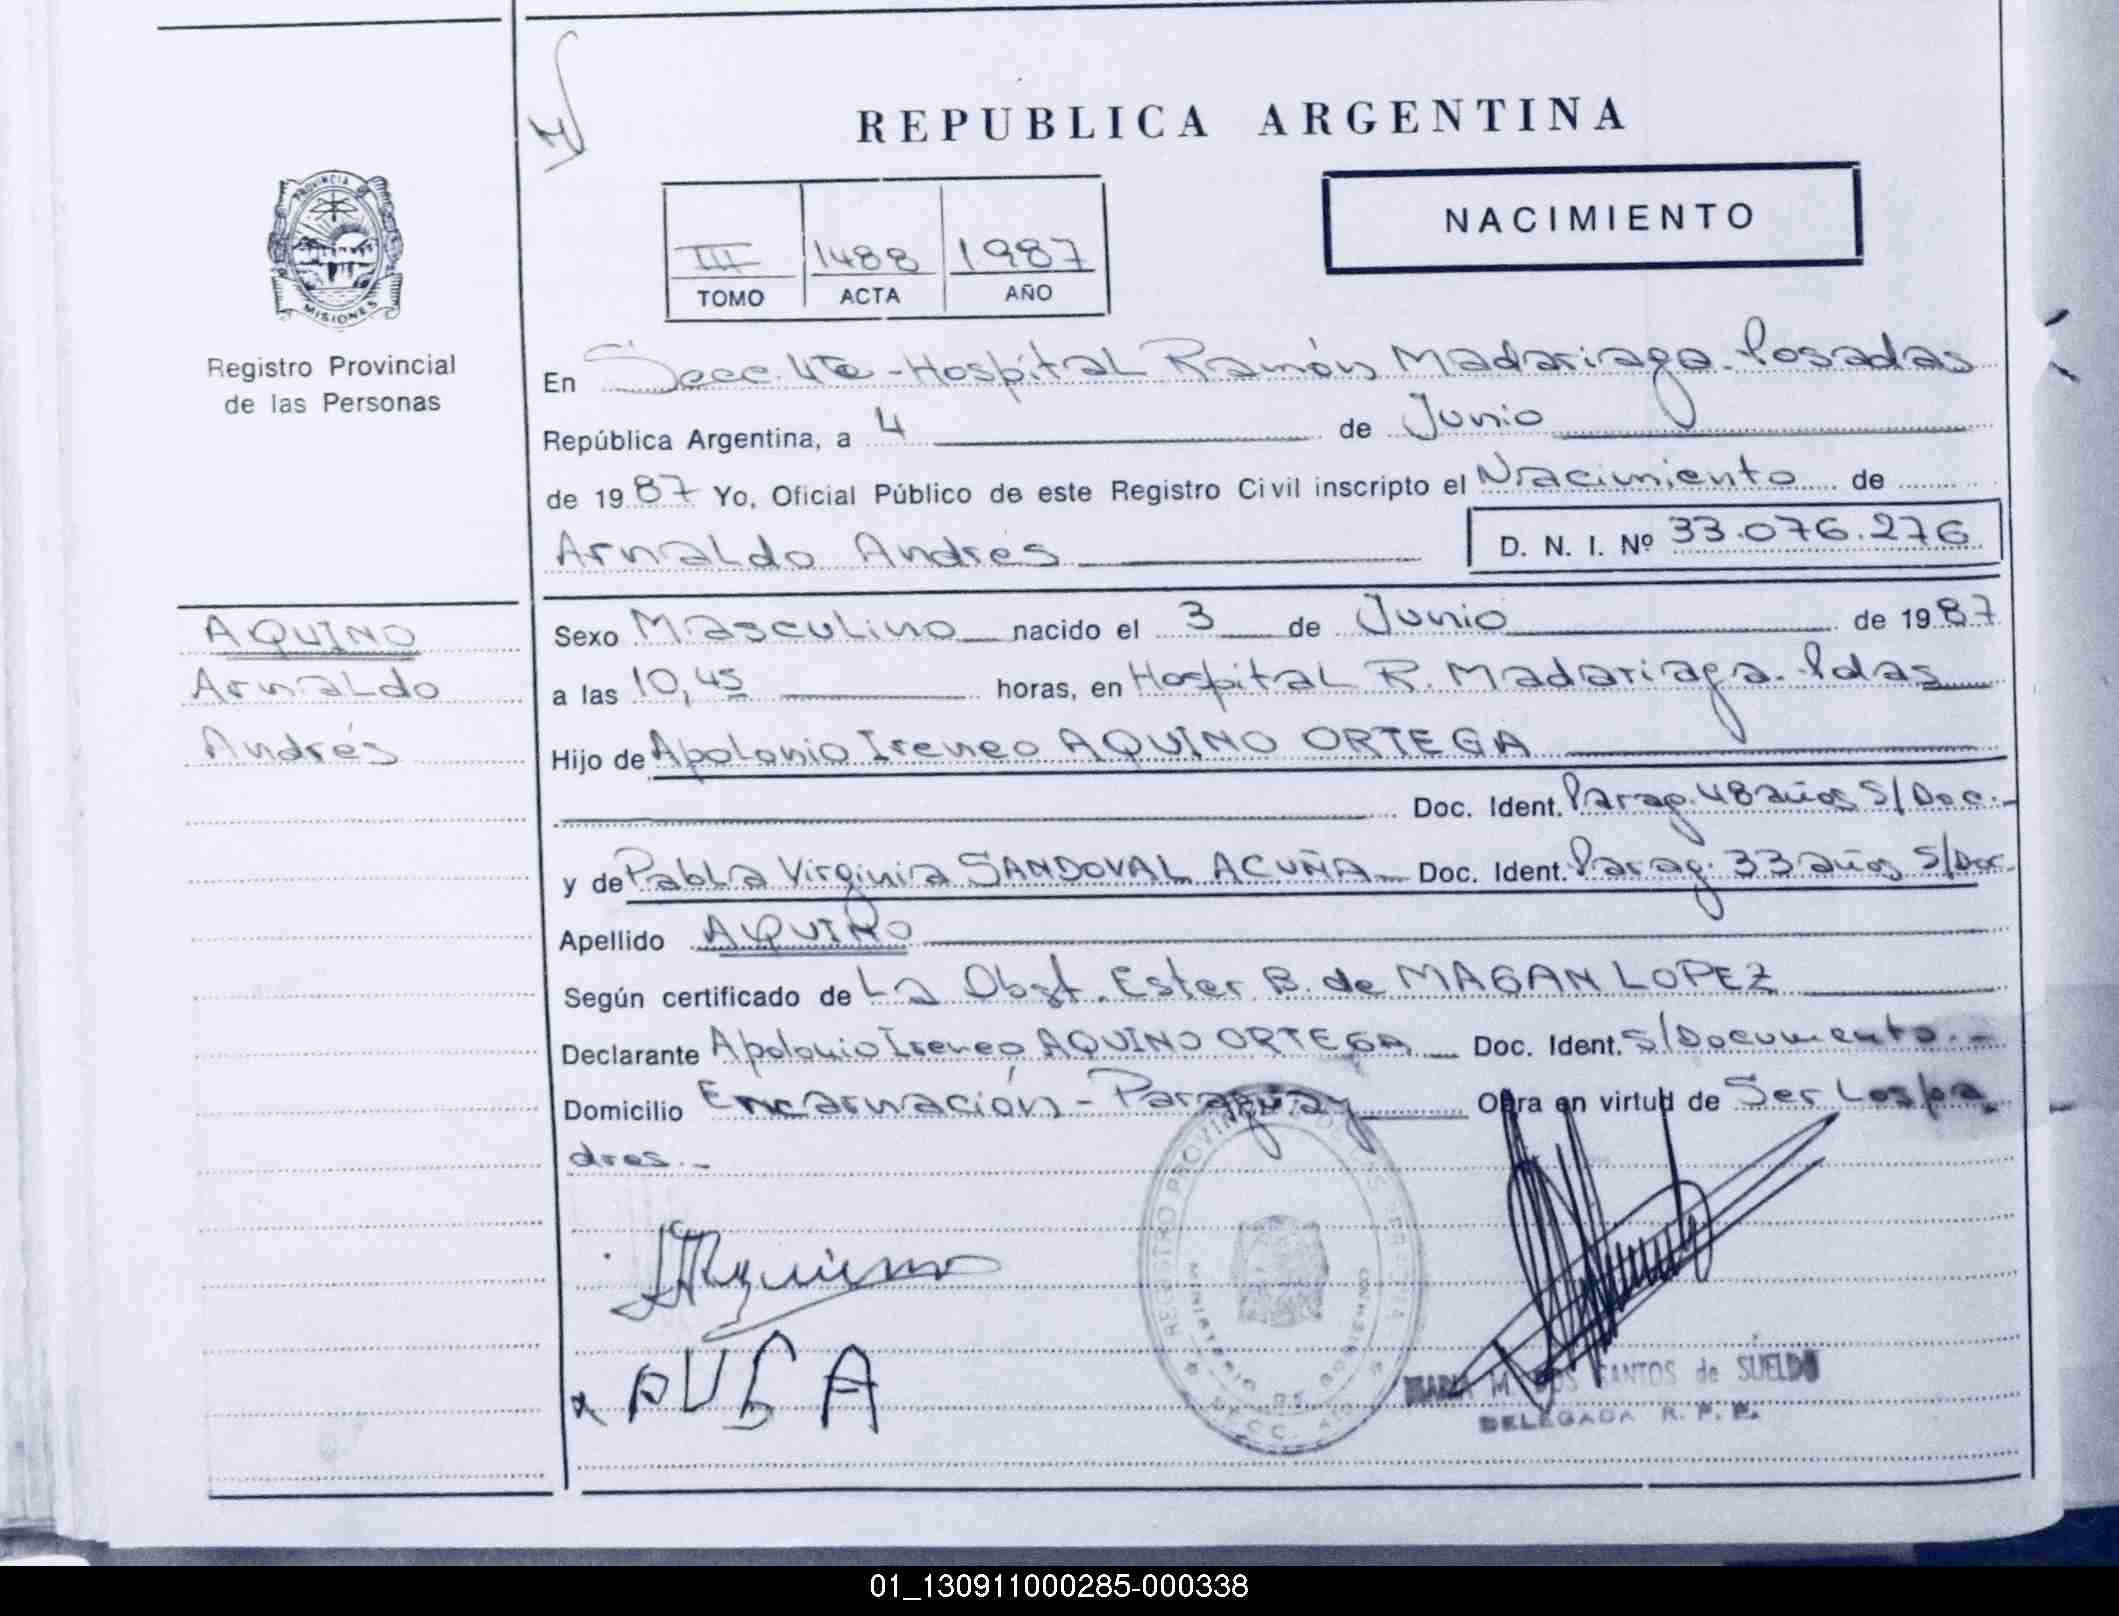 REPUBLICA ARGENTINA
NACIMIENTO
III 1488 1987
TOMO ACTA AÑO
PROVINCIA DE
MISIONES
Registro Provincial
de las Personas
En Secc. 4ta - Hospital Ramón Madariaga - Posadas
República Argentina, a 4 de Junio
de 1987 Yo, Oficial Público de este Registro Civil inscripto el Nacimiento de
Arnaldo Andrés
D. N. I. Nº 33.076.276
AQUINO
Arnaldo
Andrés
Sexo Masculino nacido el 3 de Junio de 1987
a las 10,45 horas, en Hospital R. Madariaga - Pdas
Hijo de Apolonio Ireneo AQUINO ORTEGA
Doc. Ident. Parag. 48 años S/Doc.-
y de Pabla Virginia SANDOVAL ACUÑA Doc. Ident. Parag. 33 años S/Doc.
Apellido AQUINO
Según certificado de La Obst. Ester B. de MAGAN LOPEZ
Declarante Apolonio Ireneo AQUINO ORTEGA Doc. Ident. S/Documento.-
Domicilio Encarnación - Paraguay Obra en virtud de Ser Los pa
dres.-
REGISTRO PROVINCIAL DE LAS PERSONAS
MINISTERIO DE GOBIERNO
SECC.
MARIA M. DOS SANTOS de SUELDO
DELEGADA R. P. P.
01_130911000285-000338